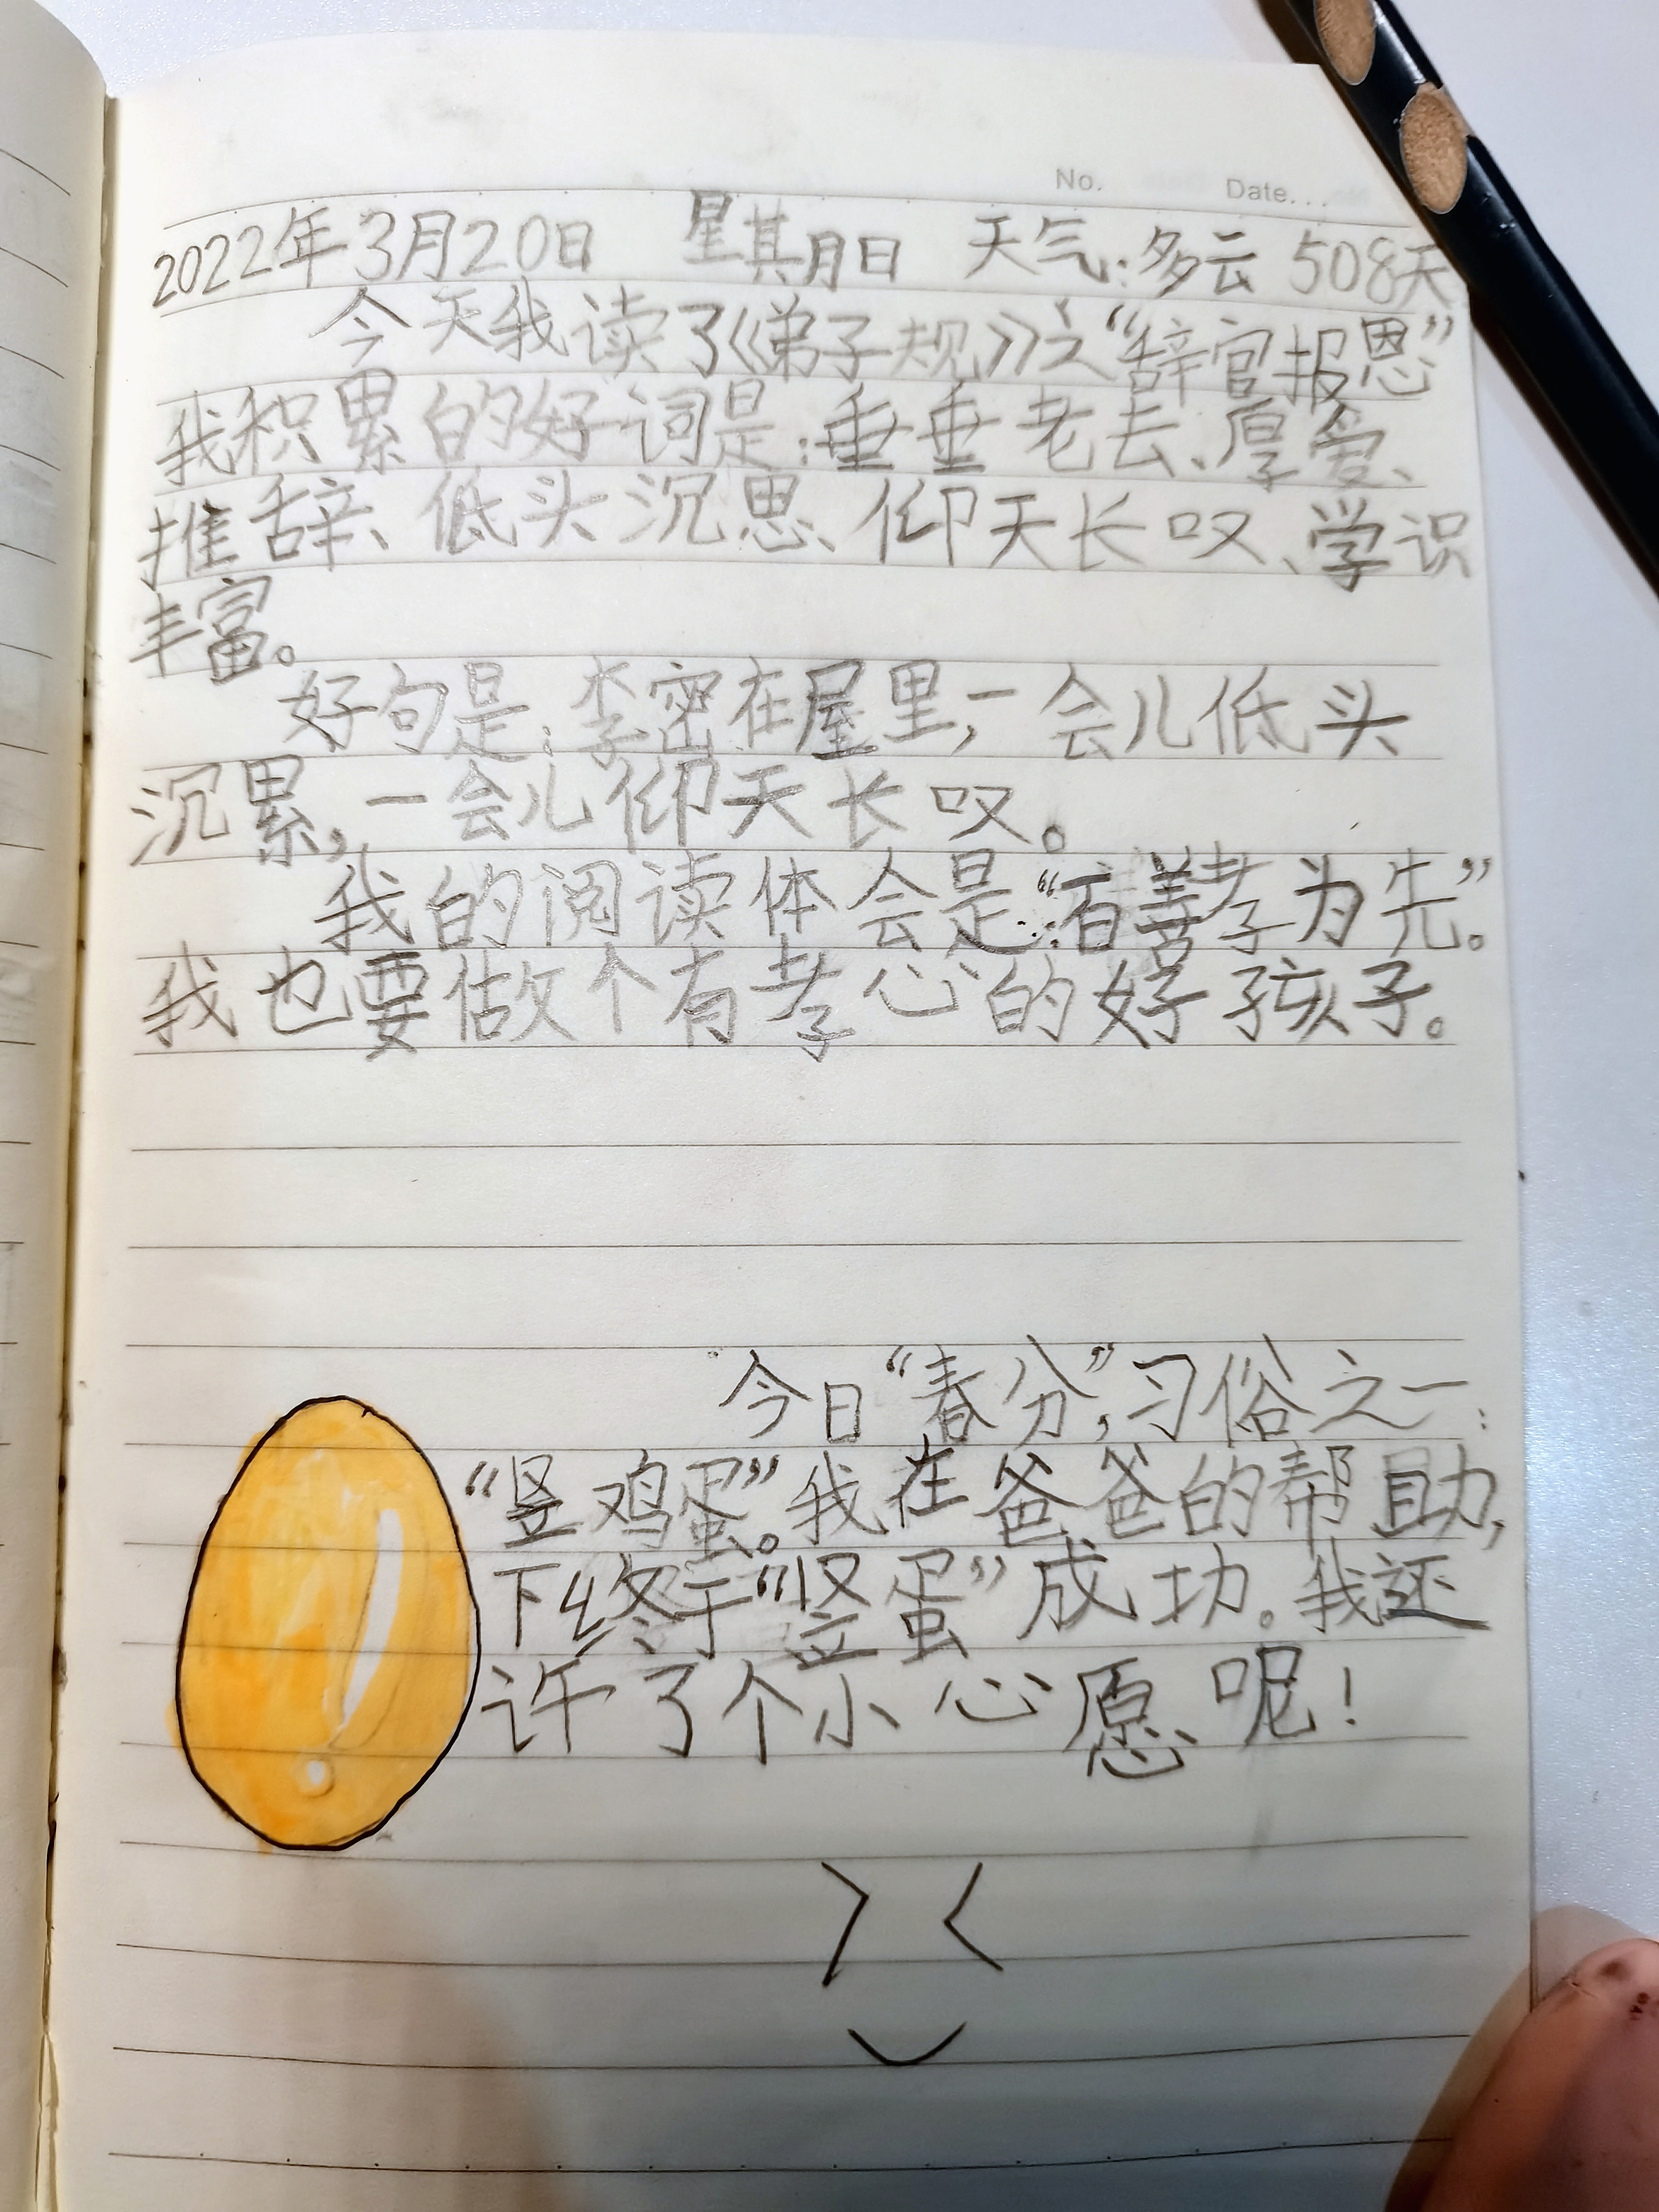 No. Date...
2022年3月20日 星期日 天气:多云 508天
今天我读了《弟子规》之“辞官报恩”
我积累的好词是:垂垂老去、厚爱、
推辞、低头沉思、仰天长叹、学识
丰富。
好句是:李密在屋里,一会儿低头
沉累,一会儿仰天长叹。
我的阅读体会是:“百善孝为先”。
我也要做个有孝心的好孩子。
今日“春分”,习俗之一:
“竖鸡蛋”。我在爸爸的帮助,
下终于“竖蛋”成功。我还
许了个小心愿呢!